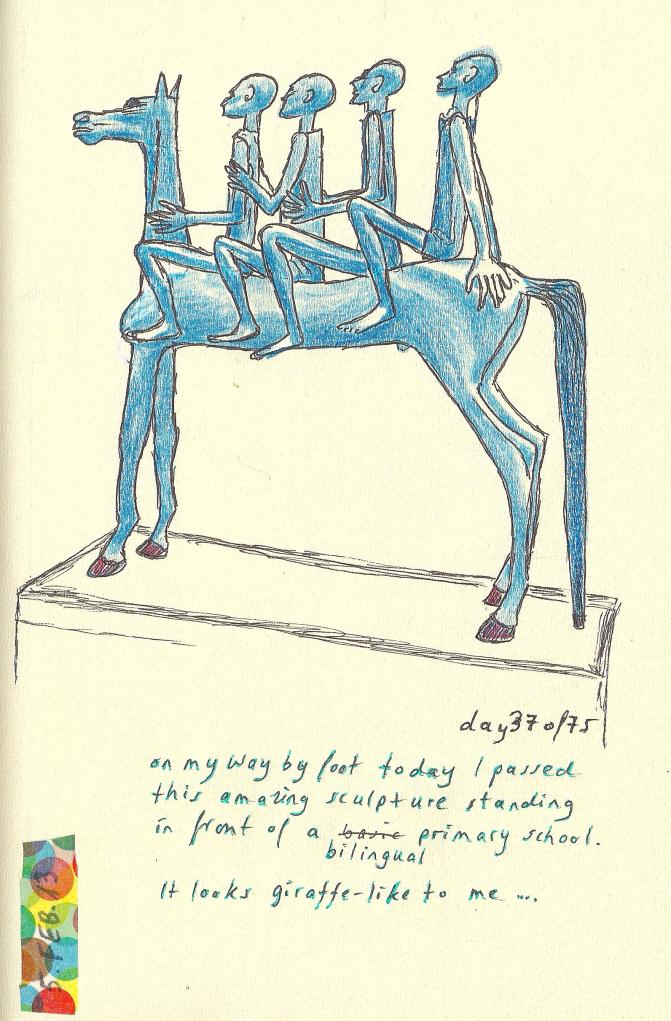 day 37 of 75
on my way by foot today I passed
this amazing sculpture standing
in front of a basic primary school.
bilingual
It looks giraffe-like to me ...
5. FEB. 13